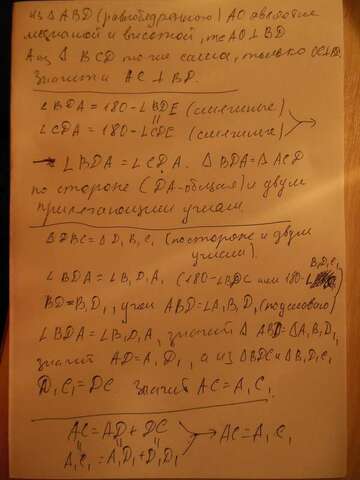 Из △ABD (равнобедренного) AC является
медианой и высотой, т.е AO⊥BD
А из △ BCD то же самое, только OC⊥BD.
Значит AC ⊥ BD.
∠BDA = 180-∠BDE (смежные)
∠CDA = 180-∠CDE (смежные)
∠BDA = ∠CDA. △BDA=△ACD
по стороне (DA-общая) и двум
прилегающим углам.
△DBC=△D,B,C, (по стороне и двум
углам).
∠BDA = ∠B,D,A, (180-∠BDC или 180-∠B,D,C,)
BD=B,D,, угол ABD=∠A,B,D, (по условию)
∠BDA = ∠B,D,A, значит △ ABD=△A,B,D,,
значит AD=A,D,, а из △BDC=△B,D,C,
D,C,=DC Значит AC=A,C,.
AC=AD+DC
A,C,=A,D,+D,D,
AC=A,C,